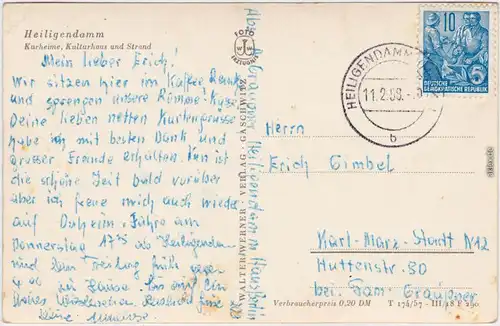 Heiligendamm
Kurheime, Kulturhaus und Strand
Mein lieber Erich!
Wir sitzen hier im Kaffee
und unsere
Deine lieben netten Kartengrüsse
habe ich mit besten Dank und
grosser Freude erhalten. Nun ist
die schöne Zeit bald vorüber
aber ich freue mich auch wieder
auf Daheim. Fahre am
Donnerstag 17 35 ab Heiligendamm
und bin Freitag früh gegen
zu Hause. Bis dahin ein
Deine
FOTO
W W
ZEITSCHEL
WALTER WERNER · VERLAG · GASCHWITZ
Abs. Graupner Heiligendamm Haus
10
DEUTSCHE
DEMOKRATISCHE REPUBLIK
HEILIGENDAMM
11.2.58
b
Herrn
Erich Gimbel
Karl-Marx-Stadt N12
Huttenstr. 30
bei Fam. Graupner
Verbraucherpreis 0,20 DM
T 174/57 - III 18 F 290